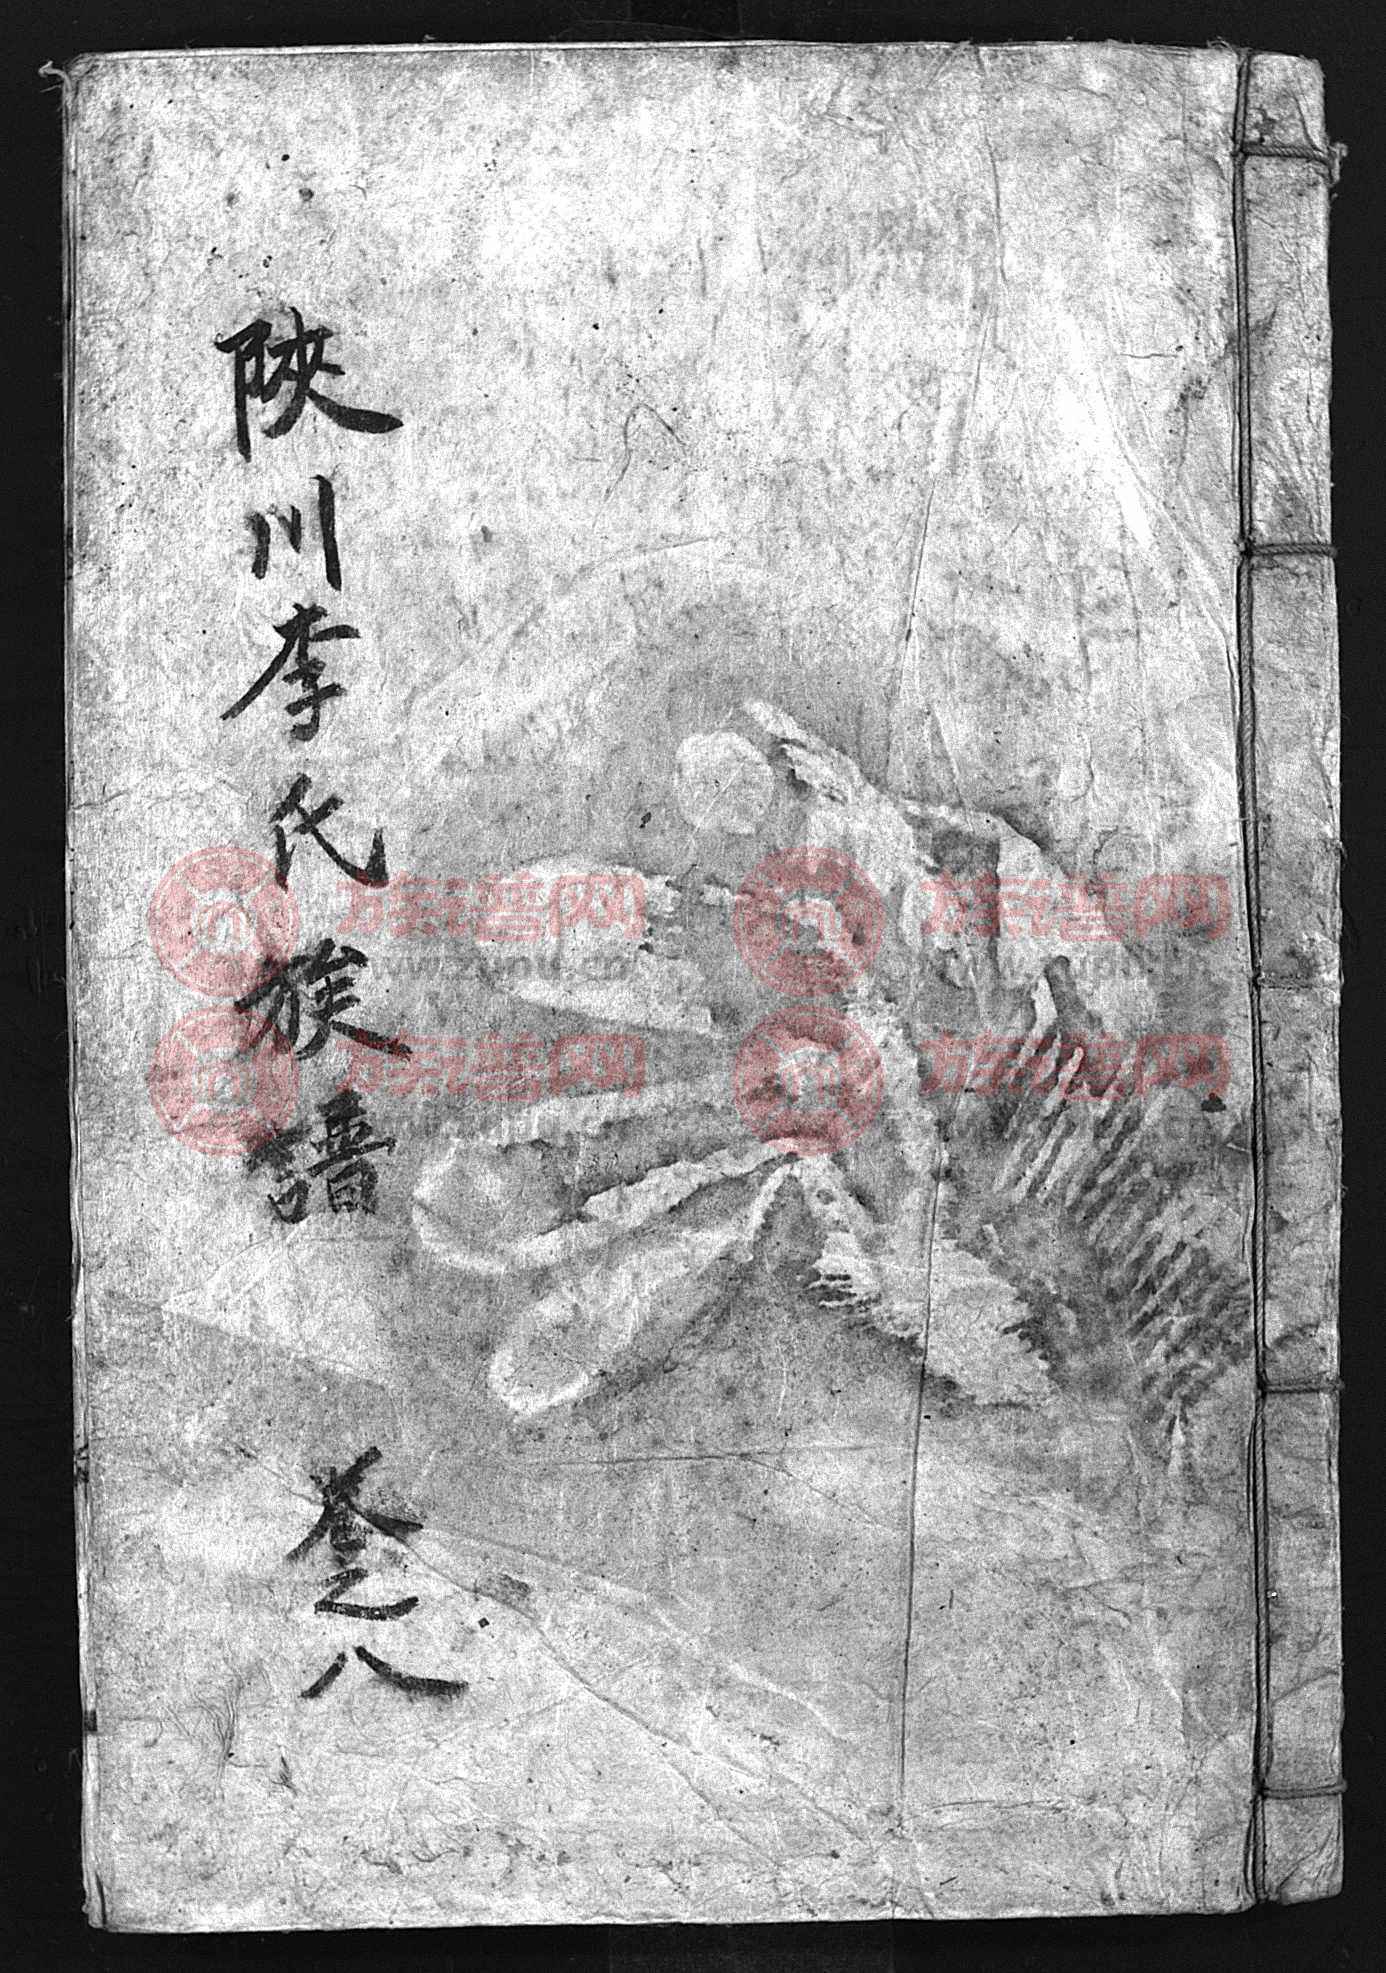 陜川李氏族譜
卷之八
族谱网 族谱网
www.zupu.cn www.zupu.cn
族谱网 族谱网